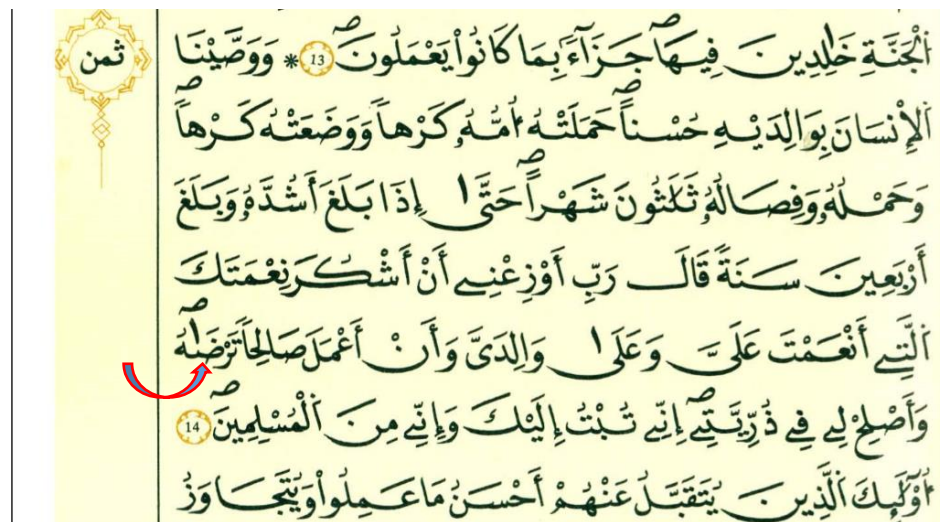 اَ۬لْجَنَّةِ خَٰلِدِينَ فِيهَاۖ جَزَآءَۢ بِمَا كَانُواْ يَعْمَلُونَۖ 13 * وَوَصَّيْنَا
ثمن
اَ۬لْإِنسَانَ بِوَالِدَيْهِ حُسْناًۖ حَمَلَتْهُ أُمُّهُۥ كَرْهاٗ وَوَضَعَتْهُ كَرْهاٗۖ
وَحَمْلُهُۥ وَفِصَالُهُۥ ثَلَٰثُونَ شَهْراًۖ حَتَّىٰٓ إِذَا بَلَغَ أَشُدَّهُۥ وَبَلَغَ
أَرْبَعِينَ سَنَةٗ قَالَ رَبِّ أَوْزِعْنِے أَنْ أَشْكُرَ نِعْمَتَكَ
اَ۬لتِے أَنْعَمْتَ عَلَيَّ وَعَلَىٰ وَٰلِدَيَّ وَأَنْ أَعْمَلَ صَٰلِحاٗ تَرْض۪يٰهُۖ
وَأَصْلِحْ لِے فِے ذُرِّيَّتِيَۖ إِنِّے تُبْتُ إِلَيْكَ وَإِنِّے مِنَ اَ۬لْمُسْلِمِينَۖ 14
أُوْلَٰٓئِكَ اَ۬لذِينَ يُتَقَبَّلُ عَنْهُمْ أَحْسَنُ مَا عَمِلُواْ وَيُتَجَاوَزُ